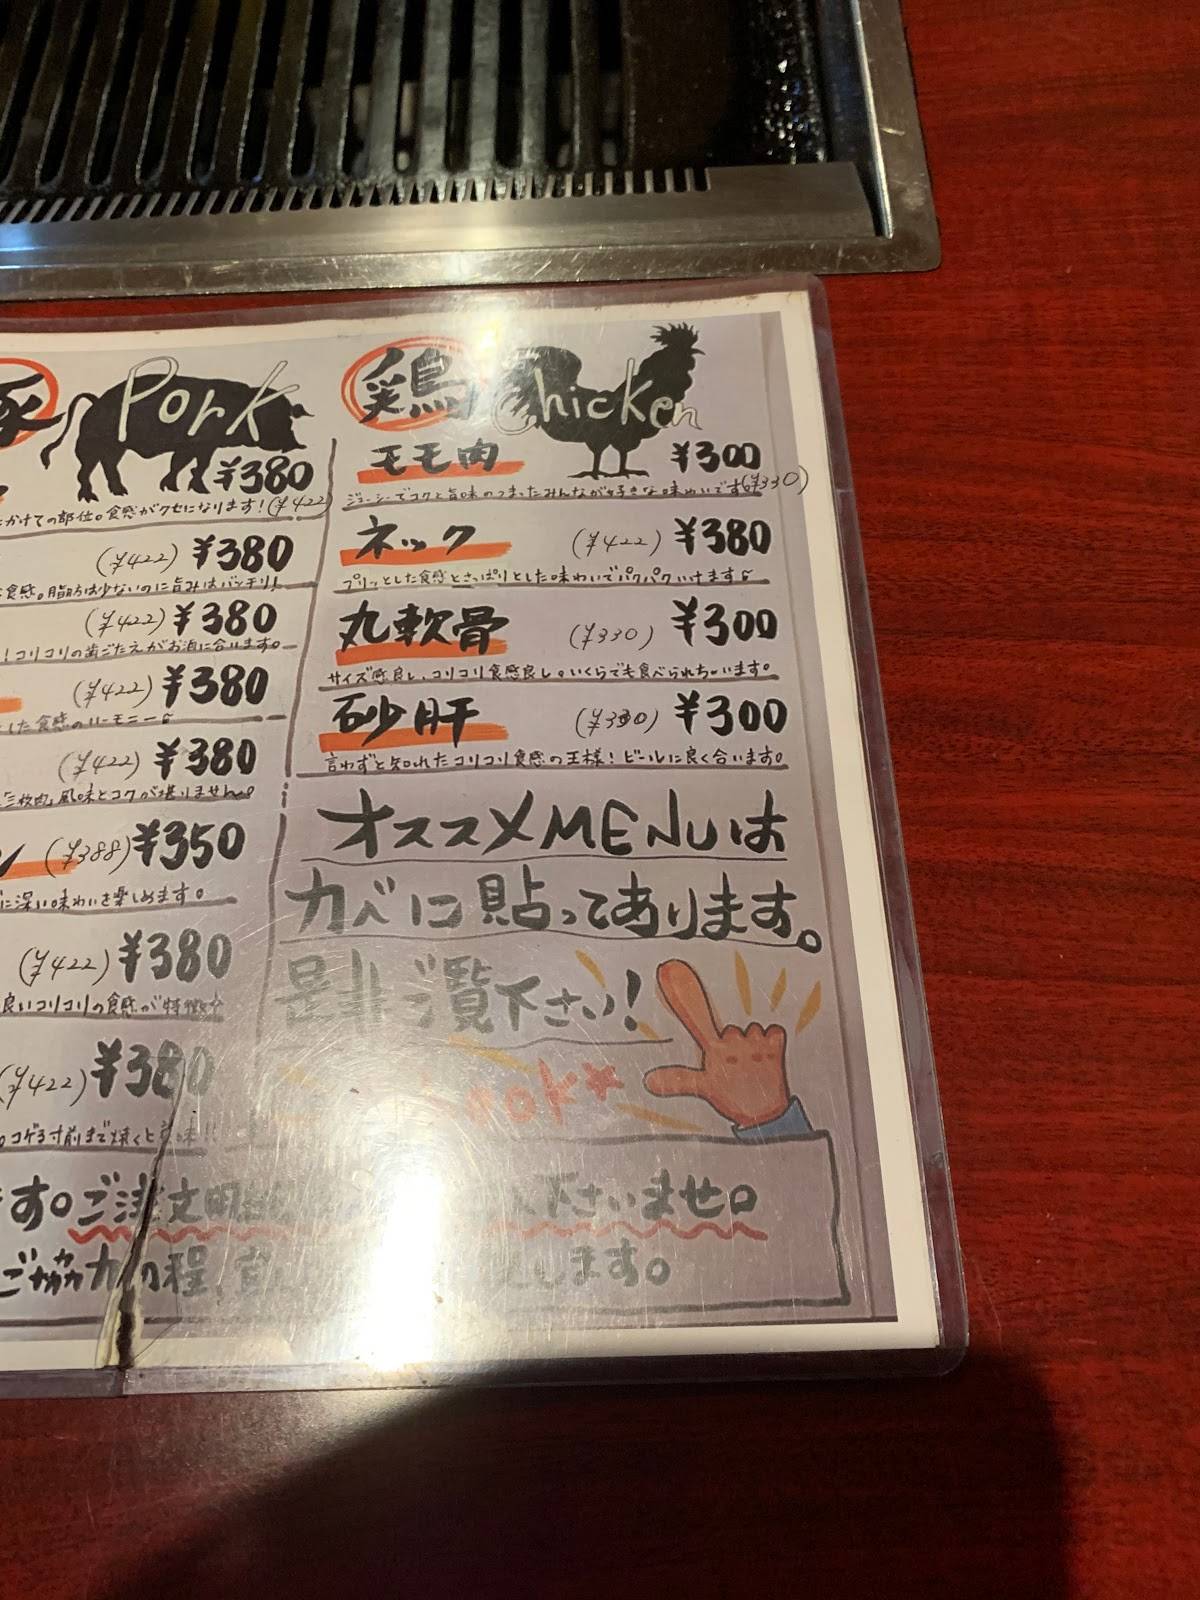 豚 Pork
¥380
かけての部位。食感がクセになります!(¥422)
(¥422) ¥380
食感。脂肪は少ないのに旨みはバッチリ!
(¥422) ¥380
!コリコリの歯ごたえがお酒に合います。
(¥422) ¥380
した食感のハーモニー♪
(¥422) ¥380
三枚肉。風味とコクが堪りません。
ン (¥388) ¥350
に深い味わいを楽しめます。
(¥422) ¥380
良いコリコリの食感が特徴☆
(¥422) ¥380
。コゲる寸前まで焼くと美味!!
鶏 Chicken
モモ肉 ¥300
ジューシーでコクと旨味のつまったみんなが好きな味わいです(¥330)
ネック (¥422) ¥380
プリッとした食感とさっぱりとした味わいでパクパクいけます♪
丸軟骨 (¥330) ¥300
サイズ感良し、コリコリ食感良し。いくらでも食べられちゃいます。
砂肝 (¥330) ¥300
言わずと知れたコリコリ食感の王様!ビールに良く合います。
オススメMENUは
カベに貼ってあります。
是非ご覧下さい!
ook*
ます。ご注文明 下さいませ。
ご協力の程、宜 します。